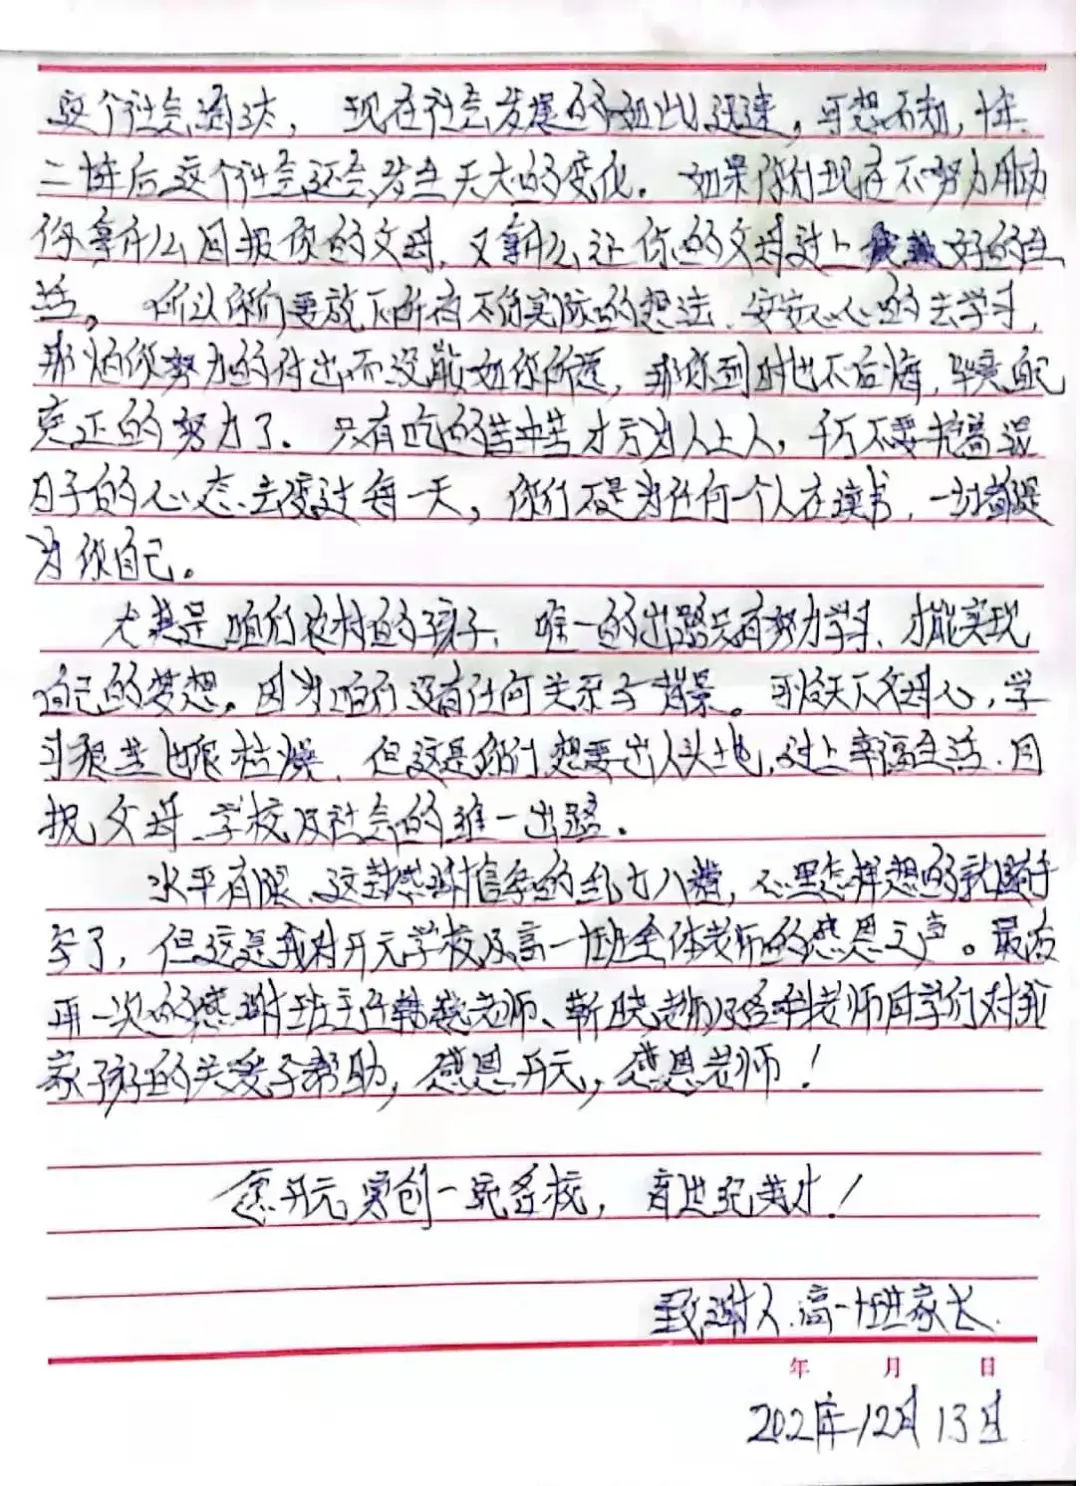 这个社会淘汰，现在社会发展的如此迅速，可想而知，十年
二十年后这个社会还会发生天大的变化。如果你们现在不努力那
你拿什么回报你的父母，又拿什么让你的父母过上好的生
活。所以你们要放下所有不切实际的想法，安安心心的去学习，
那怕你努力的付出而没能如你所愿，那你到时也不后悔，毕竟自己
真正的努力了。只有吃的苦中苦才方为人上人，千万不要抱着混
日子的心态去度过每一天，你们不是为任何一个人在读书，一切都是
为你自己。
尤其是咱们农村的孩子，唯一的出路只有努力学习，才能实现
自己的梦想。因为咱们没有任何关系与背景。可怜天下父母心，学
习很苦也很枯燥，但这是你们想要出人头地，过上幸福生活，回
报父母、学校及社会的唯一出路。
水平有限，这封感谢信写的乱七八糟，心里怎样想的就随手
写了，但这是我对开元学校及高一十班全体老师的感恩之声。最后
再一次的感谢班主任韩老师、靳晓老师及各科老师同学们对我
家孩子的关爱与帮助，感恩开元，感恩老师！
愿开元学创一流名校，育世纪英才！
致谢人：高一十班家长
年 月 日
2021年12月13日